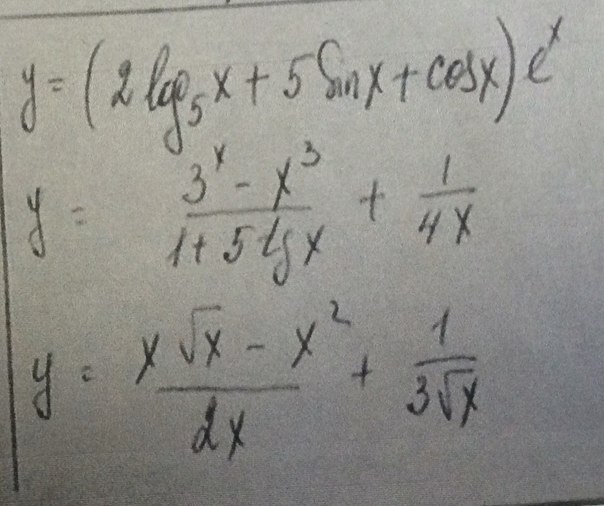 y = (2 log₅x + 5 sin x + cos x) eˣ
y = (3ˣ - x³)/(1 + 5 tg x) + 1/(4x)
y = (x√x - x²)/(2x) + 1/(3√x)